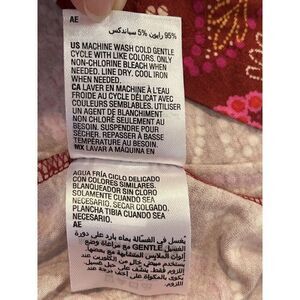 AE
95% رايون 5% سباندكس
US MACHINE WASH COLD GENTLE
CYCLE WITH LIKE COLORS. ONLY
NON-CHLORINE BLEACH WHEN
NEEDED. LINE DRY. COOL IRON
WHEN NEEDED.
CA LAVER EN MACHINE À L'EAU
FROIDE AU CYCLE DÉLICAT AVEC
COULEURS SEMBLABLES. UTILISER
UN AGENT DE BLANCHIMENT
NON CHLORÉ SEULEMENT AU
BESOIN. SUSPENDRE POUR
SÉCHER. REPASSER À BASSE
TEMPÉRATURE AU BESOIN.
MX LAVAR A MÁQUINA EN
AGUA FRÍA CICLO DELICADO
CON COLORES SIMILARES.
BLANQUEADOR SIN CLORO
SOLAMENTE CUANDO SEA
NECESARIO. SECAR COLGADO.
PLANCHA TIBIA CUANDO SEA
NECESARIO.
AE
يغسل في الغسالة بماء بارد على دورة
الغسيل GENTLE مع مراعاة وضع
ألوان الملابس المتشابهة مع بعضها.
يستخدم مبيض خالي من الكلور عند
اللزوم فقط. ينشف على حبل غسيل.